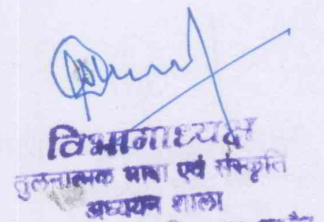 विभागाध्यक्ष
तुलनात्मक भाषा एवं संस्कृति
अध्ययन शाला